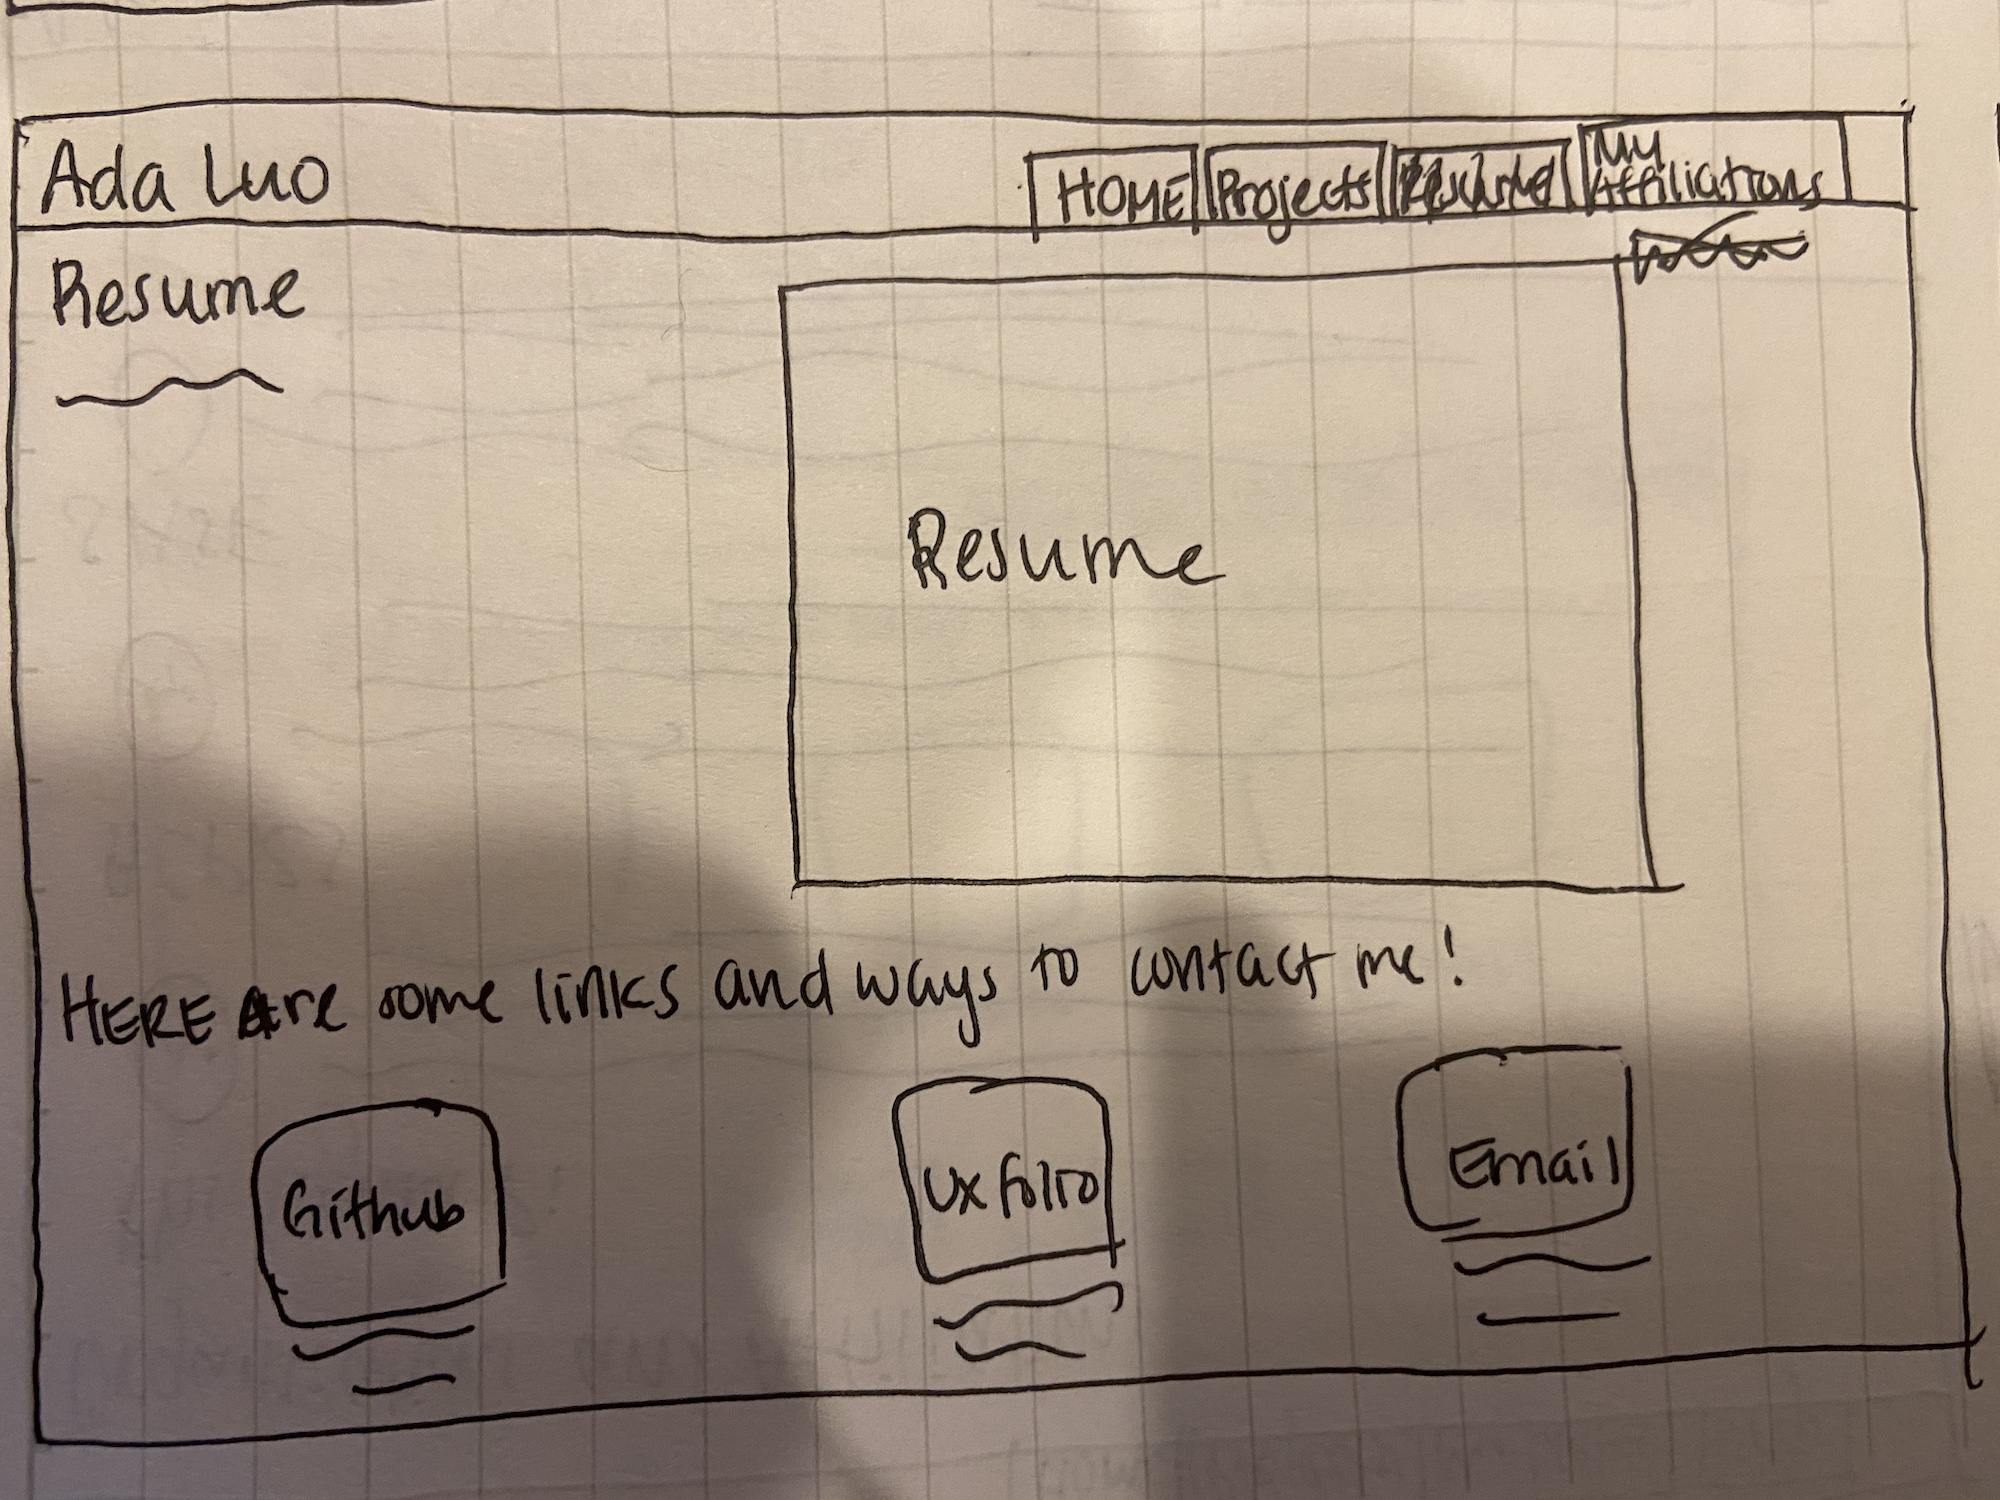 Ada Luo
HOME Projects Resume My
Affiliations
Resume
Resume
HERE Are some links and ways to contact me!
Github UX folio Email